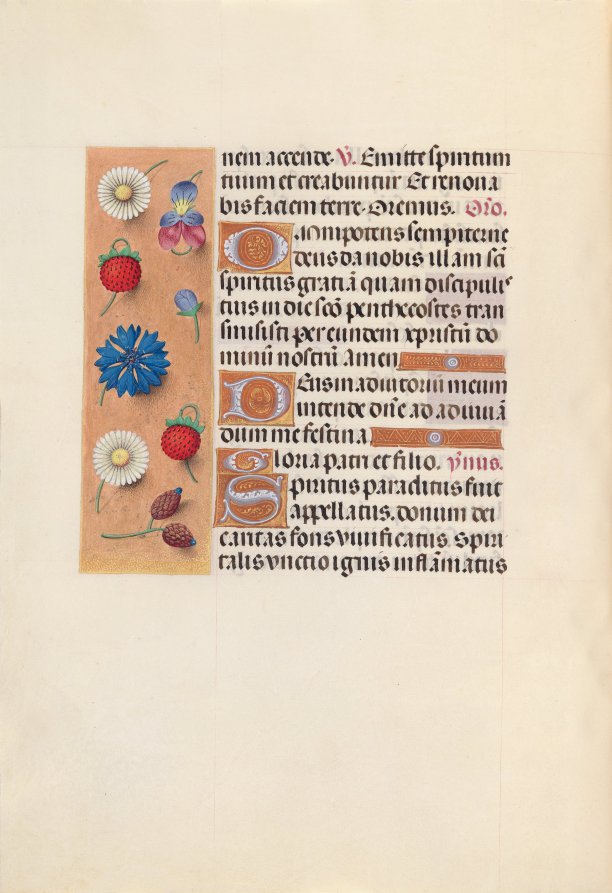 nem accende. V. Emitte spiritum
tuum et creabuntur Et renoua
bis faciem terre. Oremus. Oro.
Omnipotens sempiterne
deus da nobis illam scī
spiritus gratiā quam discipulis
tuis in die scō penthecostes tran
smisisti per eundem xpristū do
minū nostrū Amen
Deus in adiutoriū meum
intende dn̄e ad adiuuā
dum me festina
Gloria patri et filio. ymus.
Spiritus paraclitus fuit
appellatus. donum dei
caritas fons uiuificatus Spiri
talis vnctio ignis inflāmatus